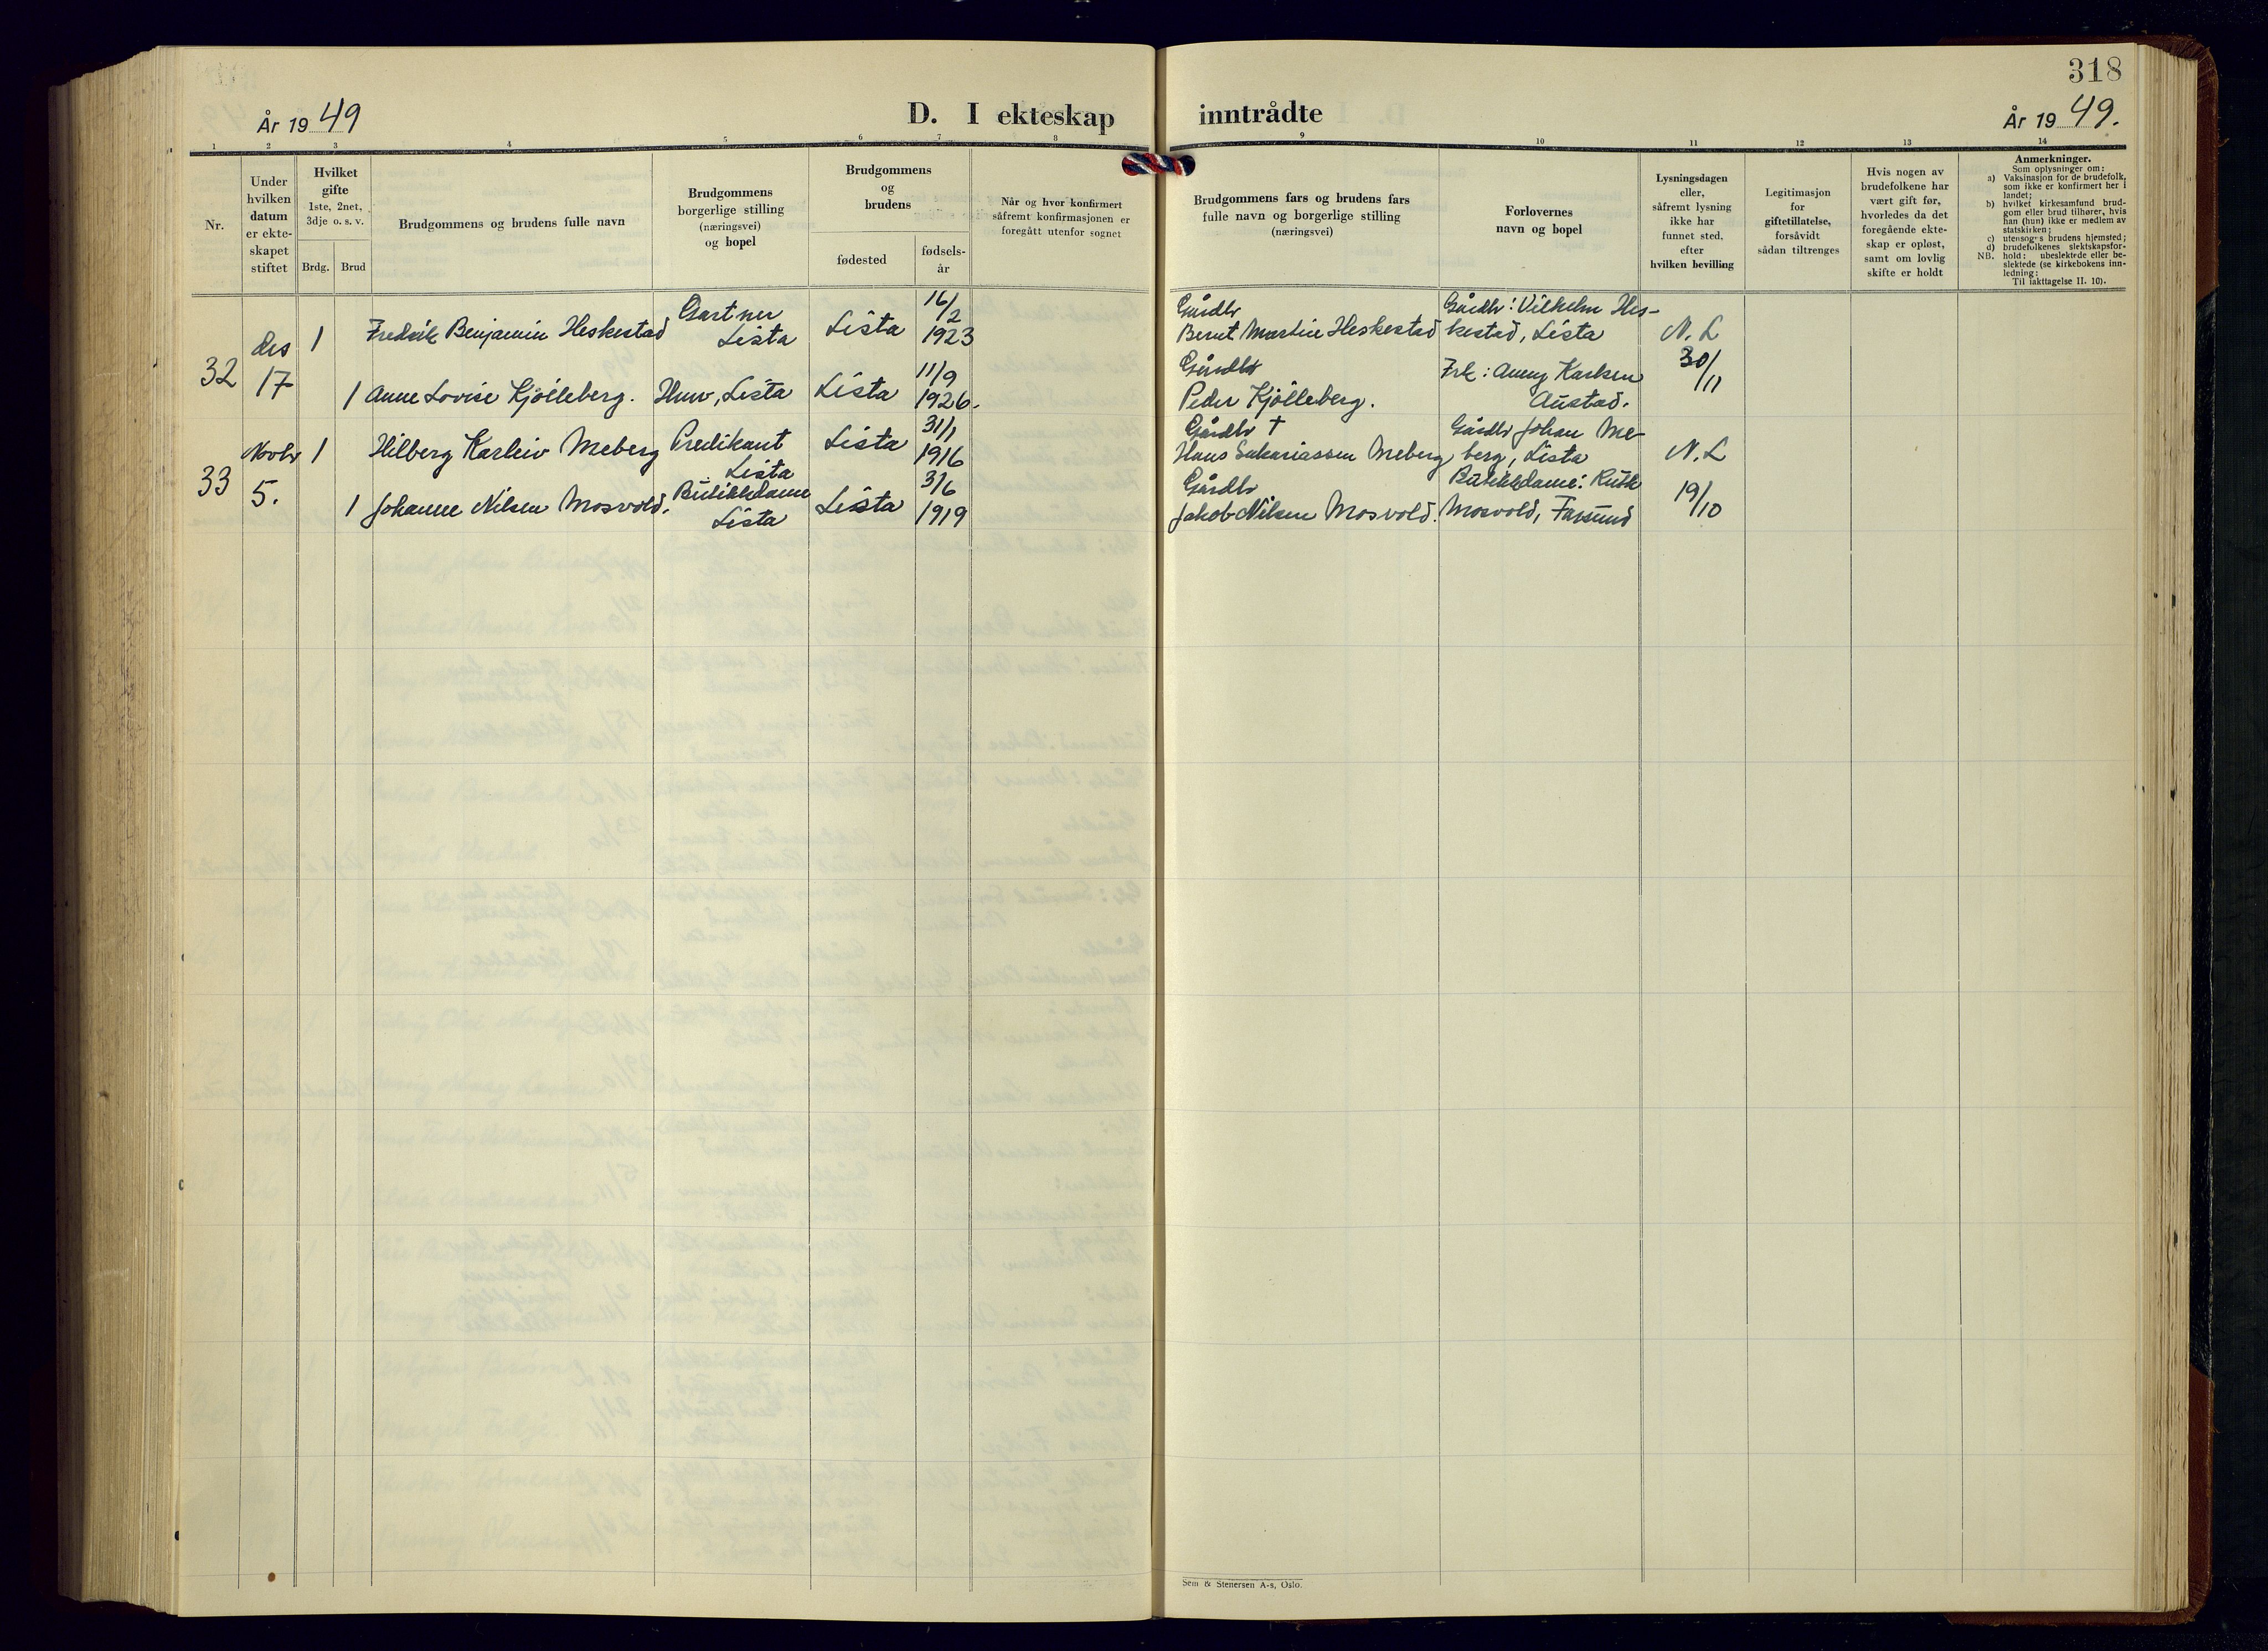 318
År 1949
D. I ekteskap inntrådte
År 1949.
1 2 3 4 5 6 7 8 9 10 11 12 13 14
Nr.
Under
hvilken
datum
er ekte-
skapet
stiftet
Hvilket
gifte
1ste, 2net,
3dje o. s. v.
Brdg. Brud
Brudgommens og brudens fulle navn
Brudgommens
borgerlige stilling
(næringsvei)
og bopel
Brudgommens
og
brudens
fødested
fødsels-
år
Når og hvor konfirmert
såfremt konfirmasjonen er
foregått utenfor sognet
Brudgommens fars og brudens fars
fulle navn og borgerlige stilling
(næringsvei)
Forlovernes
navn og bopel
Lysningsdagen
eller,
såfremt lysning
ikke har
funnet sted,
efter
hvilken bevilling
Legitimasjon
for
giftetillatelse,
forsåvidt
sådan tiltrenges
Hvis nogen av
brudefolkene har
vært gift før,
hvorledes da det
foregående ekte-
skap er opløst,
samt om lovlig
skifte er holdt
Anmerkninger.
Som oplysninger om:
a) Vaksinasjon for de brudefolk,
som ikke er konfirmert her i
landet;
b) hvilket kirkesamfund brud-
gom eller brud tilhører, hvis
han (hun) ikke er medlem av
statskirken;
c) utensogns brudens hjemsted;
d) brudefolkenes slektskapsfor-
NB. hold: ubeslektede eller be-
slektede (se kirkebokens inn-
ledning:
Til iakttagelse II. 10).
32
des
17
1
Fredrik Benjamin Heskestad
Gartner
Lista
Lista
16/2
1923
Gårdbr
Berut Martin Heskestad
Gårdbr: Vilhelm Hes-
kestad, Lista
N. L
30/11
1
Anne Lovise Kjölleberg.
Husv, Lista
Lista
11/9
1926.
Gårdbr
Peder Kjölleberg.
Frk: Anny Karlsen
Austad.
33
Novbr
5.
1
Hilberg Karleiv Meberg
Predikant
Lista
Lista
31/1
1916
Gårdbr †
Hans Sakariassen Meberg
Gårdbr Johan Me-
berg, Lista
N. L
19/10
1
Johanne Nilsen Mosvold.
Butikkdame
Lista
Lista
3/6
1919
Gårdbr
Jakob Nilsen Mosvold.
Butikkdame: Ruth
Mosvold, Farsund
Sem & Stenersen A-s, Oslo.